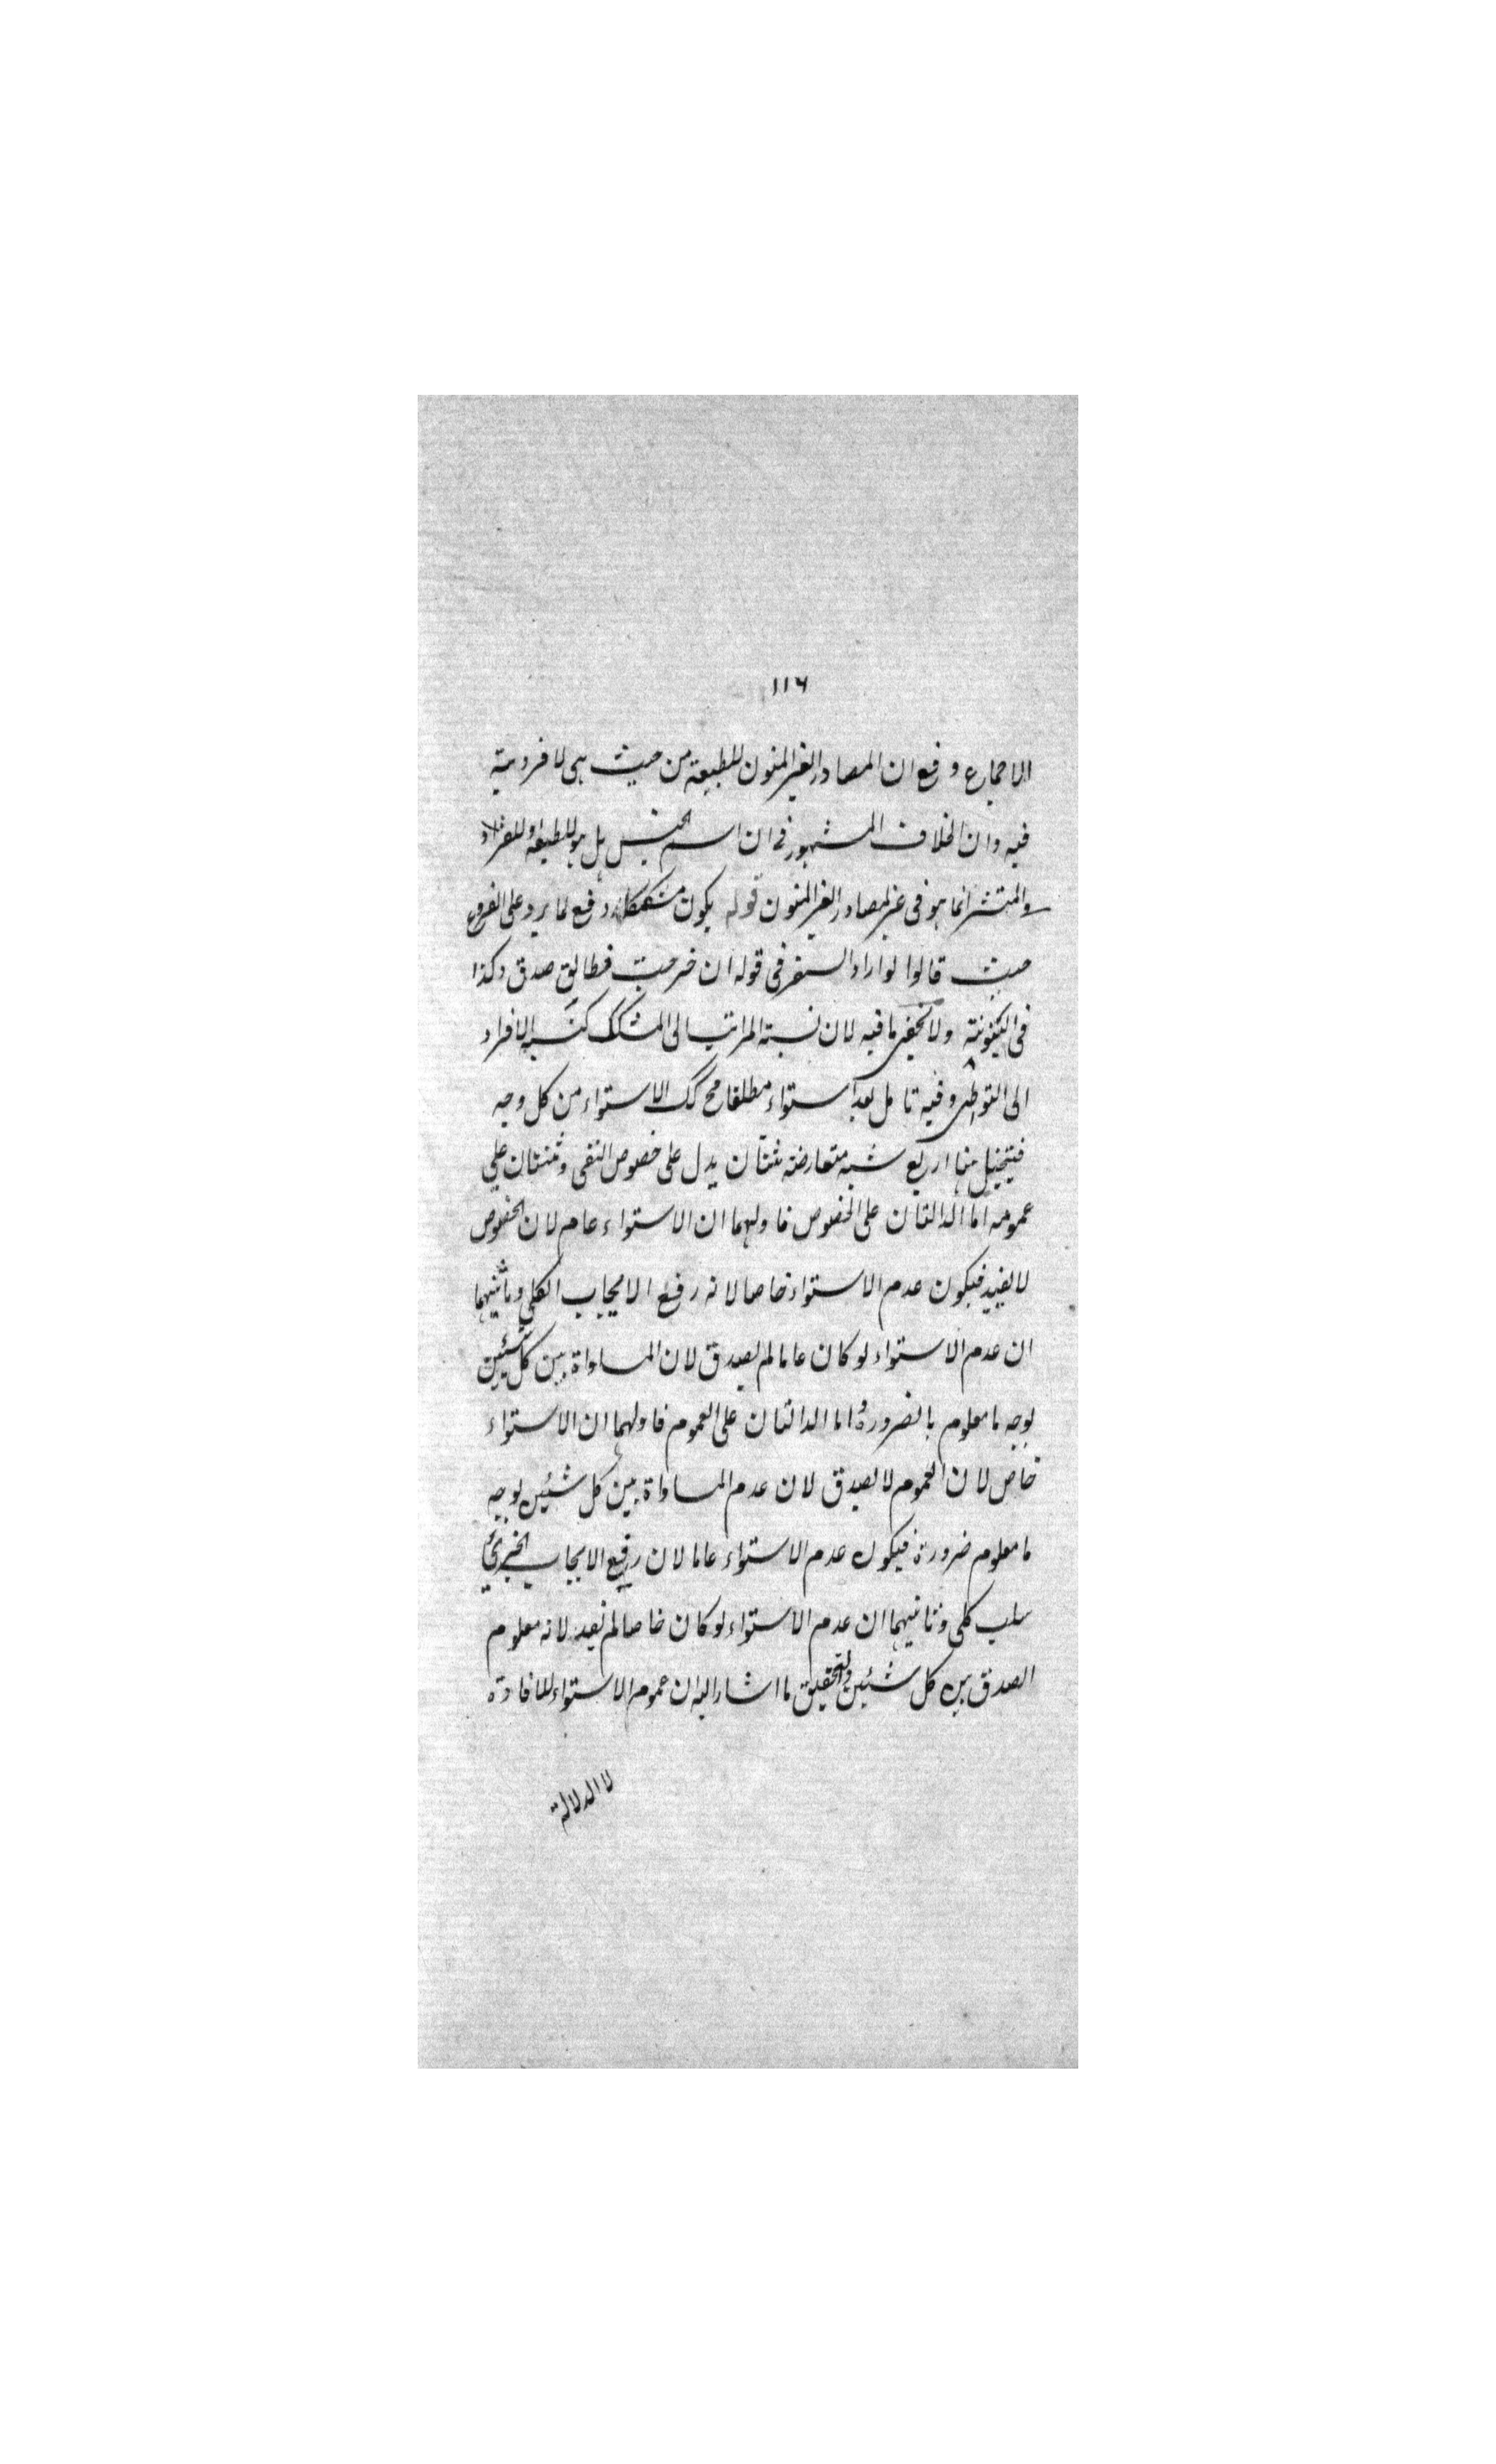 ١١٦
الاجماع وقع ان المصادر الغير المنون للطبيعة من حيث هى لا فردية
فيه وان الخلاف المشهور فى ان اسم الجنس هل هو للطبيعة او للفرد
المنتشر انما هو فى غير المصادر الغير المنون قوله يكون مشككا دفع لما يرد على الفروع
حيث قالوا لو اراد السفر فى قوله ان خرجت فطالق صدق وكذا
فى البينونة ولا يخفى ما فيه لان نسبة المراتب الى المشكك كنسبة الافراد
الى المتواطى وفيه تامل بعد استواء مطلقا الاستواء من كل وجه
فيتخيل هنا اربع شبه متعارضة ثنتان يدل على خصوص النفى وثنتان على
عمومه اما الدالتان على الخصوص فاولهما ان الاستواء عام لان الخصوص
لا يفيد فيكون عدم الاستواء خاصا لانه رفع الايجاب الكلى وثانيهما
ان عدم الاستواء لو كان عاما لم يصدق لان المساواة بين كل شيئين
بوجه ما معلوم بالضرورة واما الدالتان على العموم فاولهما ان الاستواء
خاص لان العموم لا يصدق لان عدم المساواة بين كل شيئين بوجه
ما معلوم ضرورة فيكون عدم الاستواء عاما لان رفع الايجاب الجزئى
سلب كلى وثانيهما ان عدم الاستواء لو كان خاصا لم يفيد لانه معلوم
الصدق بين كل شيئين والتحقيق ما اشار اليه ان عموم الاستواء للافادة
لا الدلالة